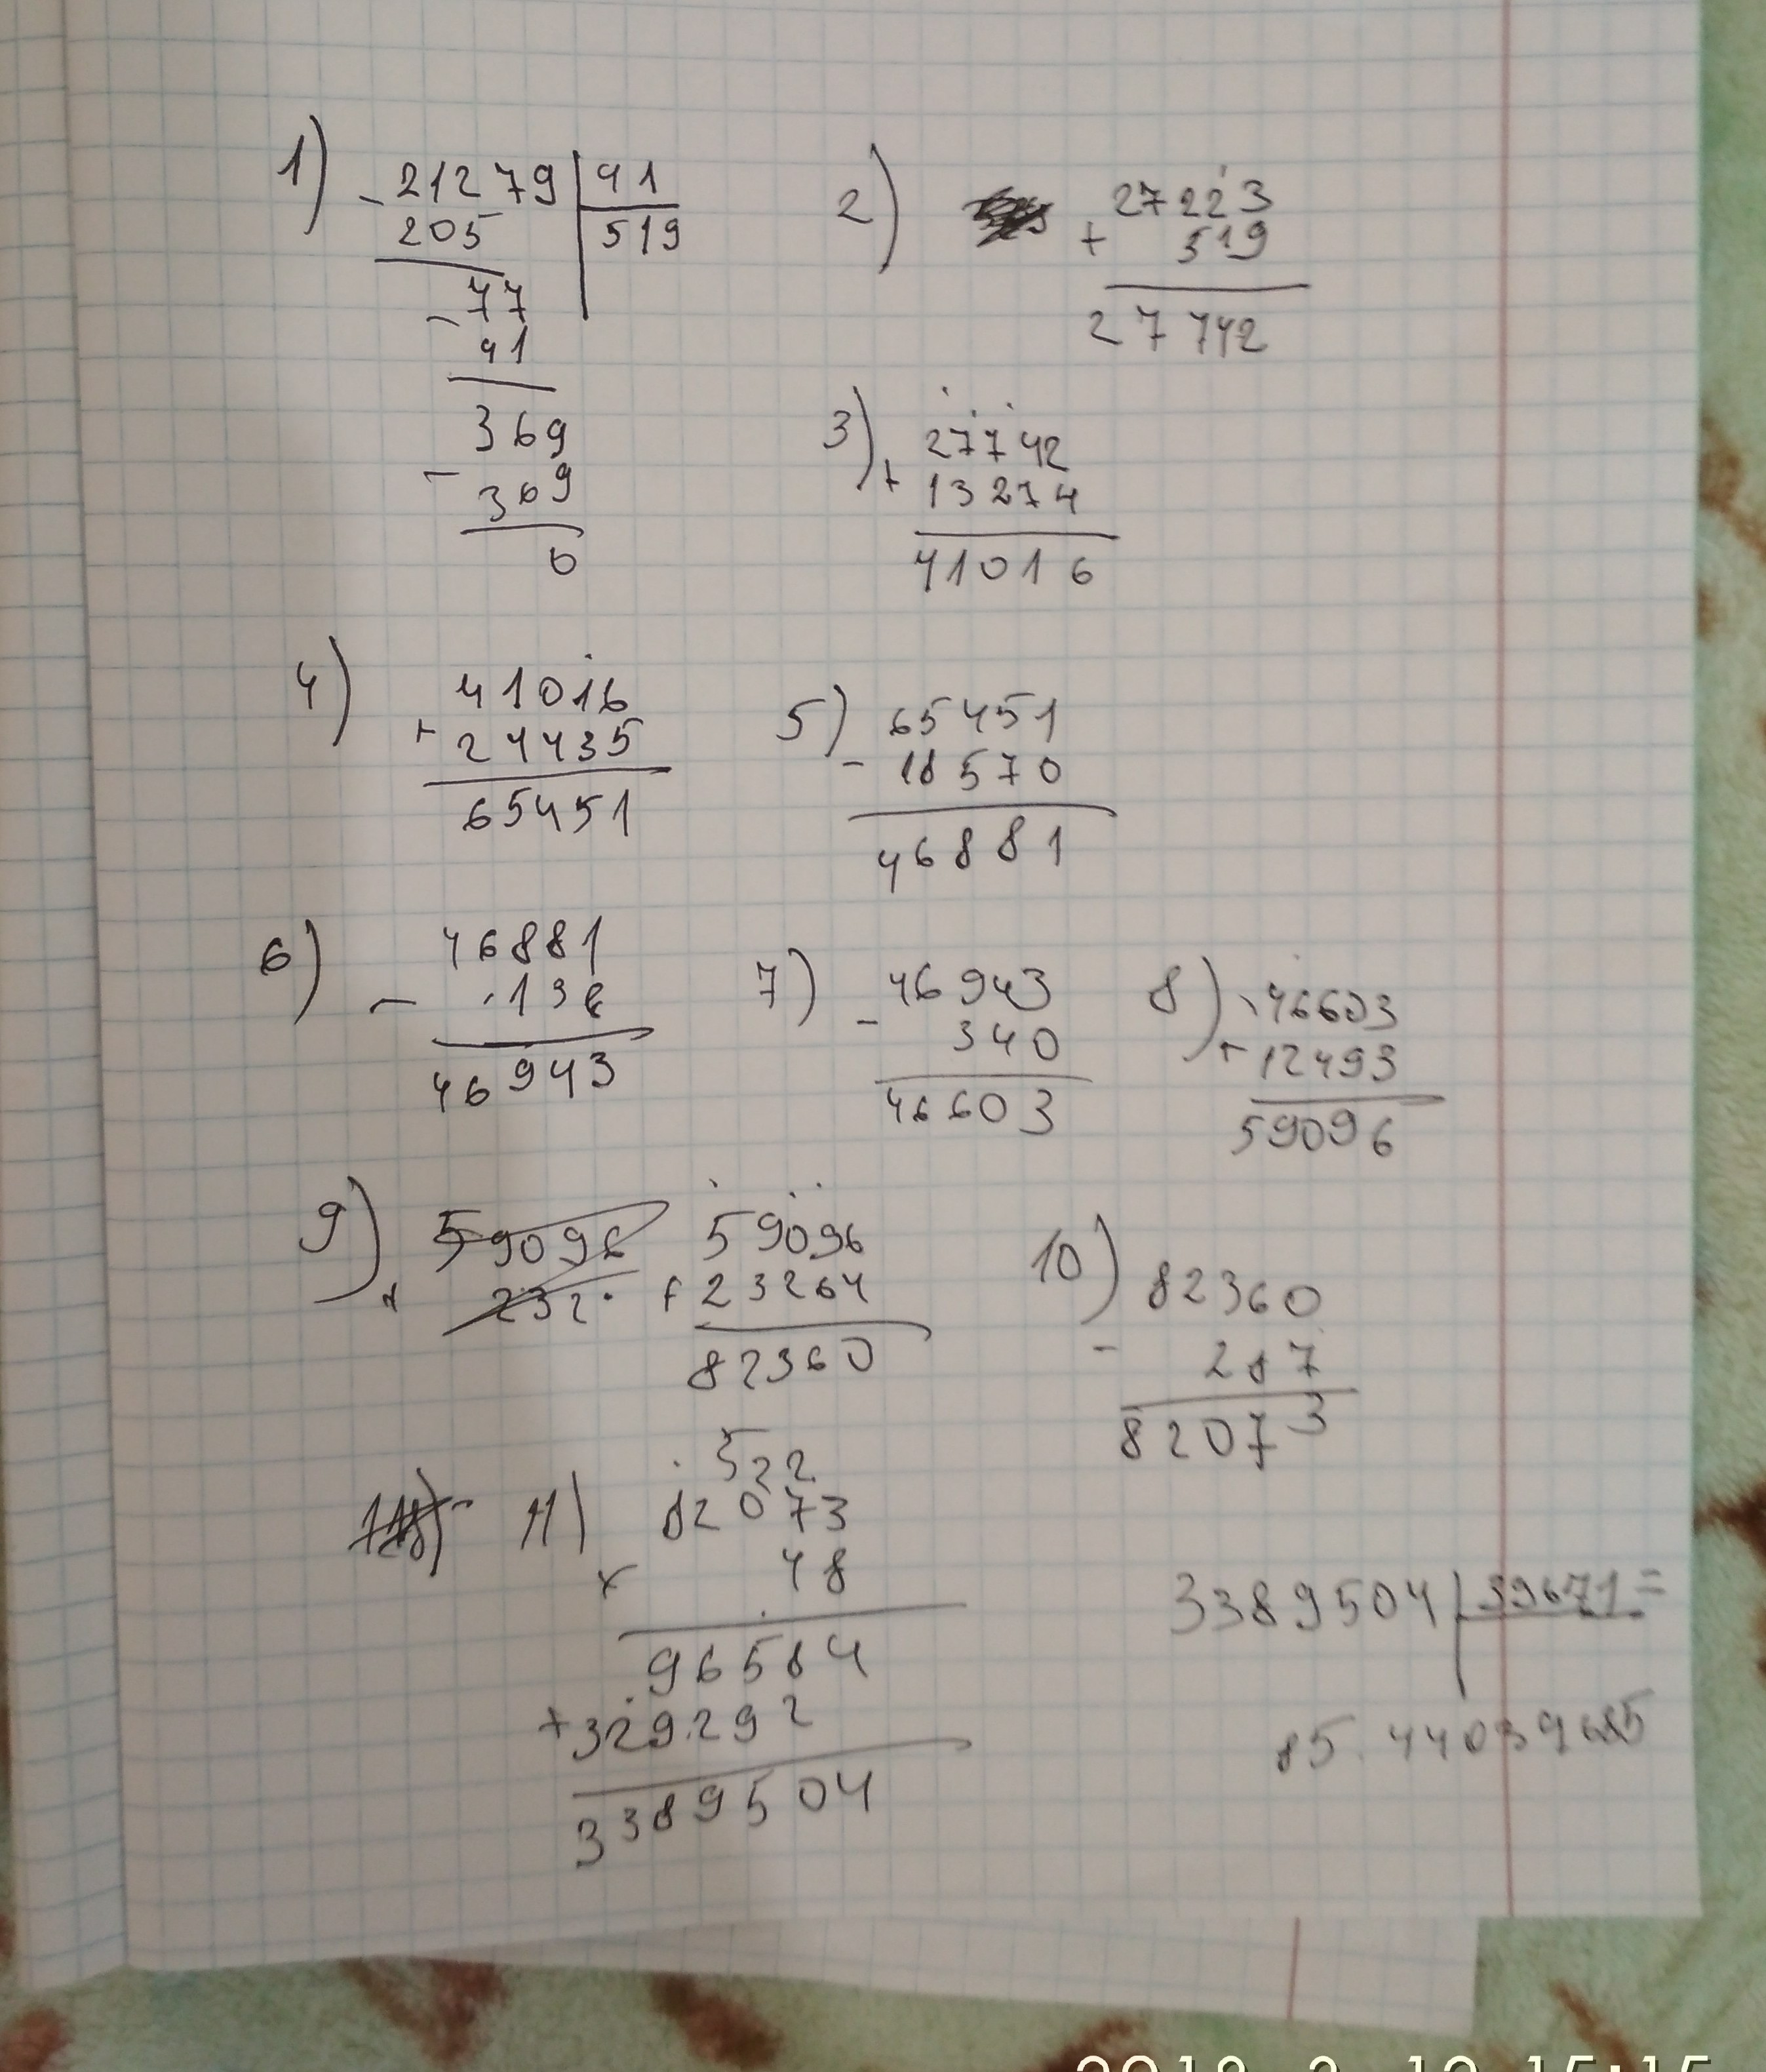 1) - 21279 | 41
205 | 519
- 77
41
369
- 369
0
2) 27223
+ 519
27742
3) 27742
+ 13274
41016
4) 41016
+ 24435
65451
5) 65451
- 18570
46881
6) 46881
- 138
46943
7) 46943
- 340
46603
8) 46603
+ 12493
59096
9) 59096
+ 232
59096
+ 23264
82360
10) 82360
- 287
82073
11) 522
82073
× 48
96584
+ 329292
3389504
3389504 | 39671 =
85.44039685